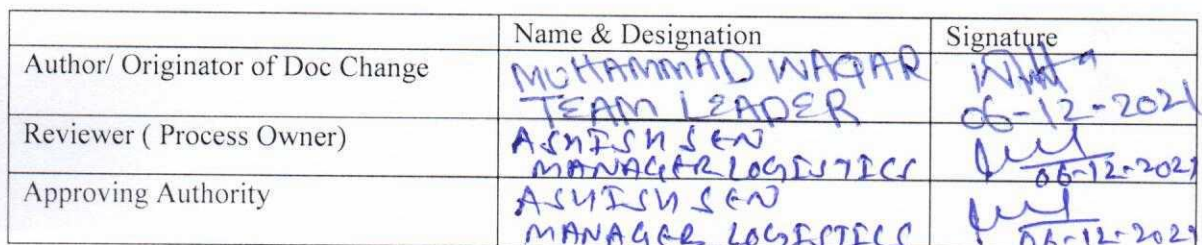 Name & Designation Signature
Author/ Originator of Doc Change MUHAMMAD WAQAR
TEAM LEADER 06-12-2021
Reviewer ( Process Owner) ASHISH SEN
MANAGER LOGISTICS 06-12-2021
Approving Authority ASHISH SEN
MANAGER LOGISTICS 06-12-2021